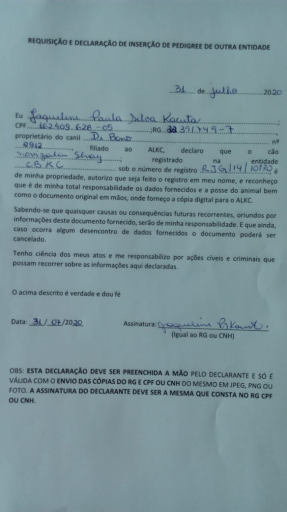 REQUISIÇÃO E DECLARAÇÃO DE INSERÇÃO DE PEDIGREE DE OUTRA ENTIDADE
31 de julho 2020
Eu Jaqueline Paula Silva
CPF 162409628-05 ;RG
proprietário do canil nº
8912 filiado ao ALKC, declaro que o cão
registrado na entidade
CBKC sob o número de registro é
de minha propriedade, autorizo que seja feito o registro em meu nome, e reconheço
que é de minha total responsabilidade os dados fornecidos e a posse do animal bem
como o documento original em mãos, onde forneço a cópia digital para o ALKC.
Sabendo-se que quaisquer causas ou consequências futuras recorrentes, oriundos por
informações deste documento fornecido, serão de minha responsabilidade. E que ainda,
caso ocorra algum desencontro de dados fornecidos o documento poderá ser
cancelado.
Tenho ciência dos meus atos e me responsabilizo por ações cíveis e criminais que
possam recorrer as informações aqui declaradas.
O acima descrito é verdade e dou fé
Data: 31/07/2020 Assinatura: Jaqueline
(Igual ao RG ou CNH)
OBS: ESTA DECLARAÇÃO DEVE SER PREENCHIDA A MÃO PELO DECLARANTE E SÓ É
VÁLIDA COM O ENVIO DAS CÓPIAS DO RG E CPF OU CNH DO MESMO EM JPEG, PNG OU
FOTO. A ASSINATURA DO DECLARANTE DEVE SER A MESMA QUE CONSTA NO RG CPF
OU CNH.